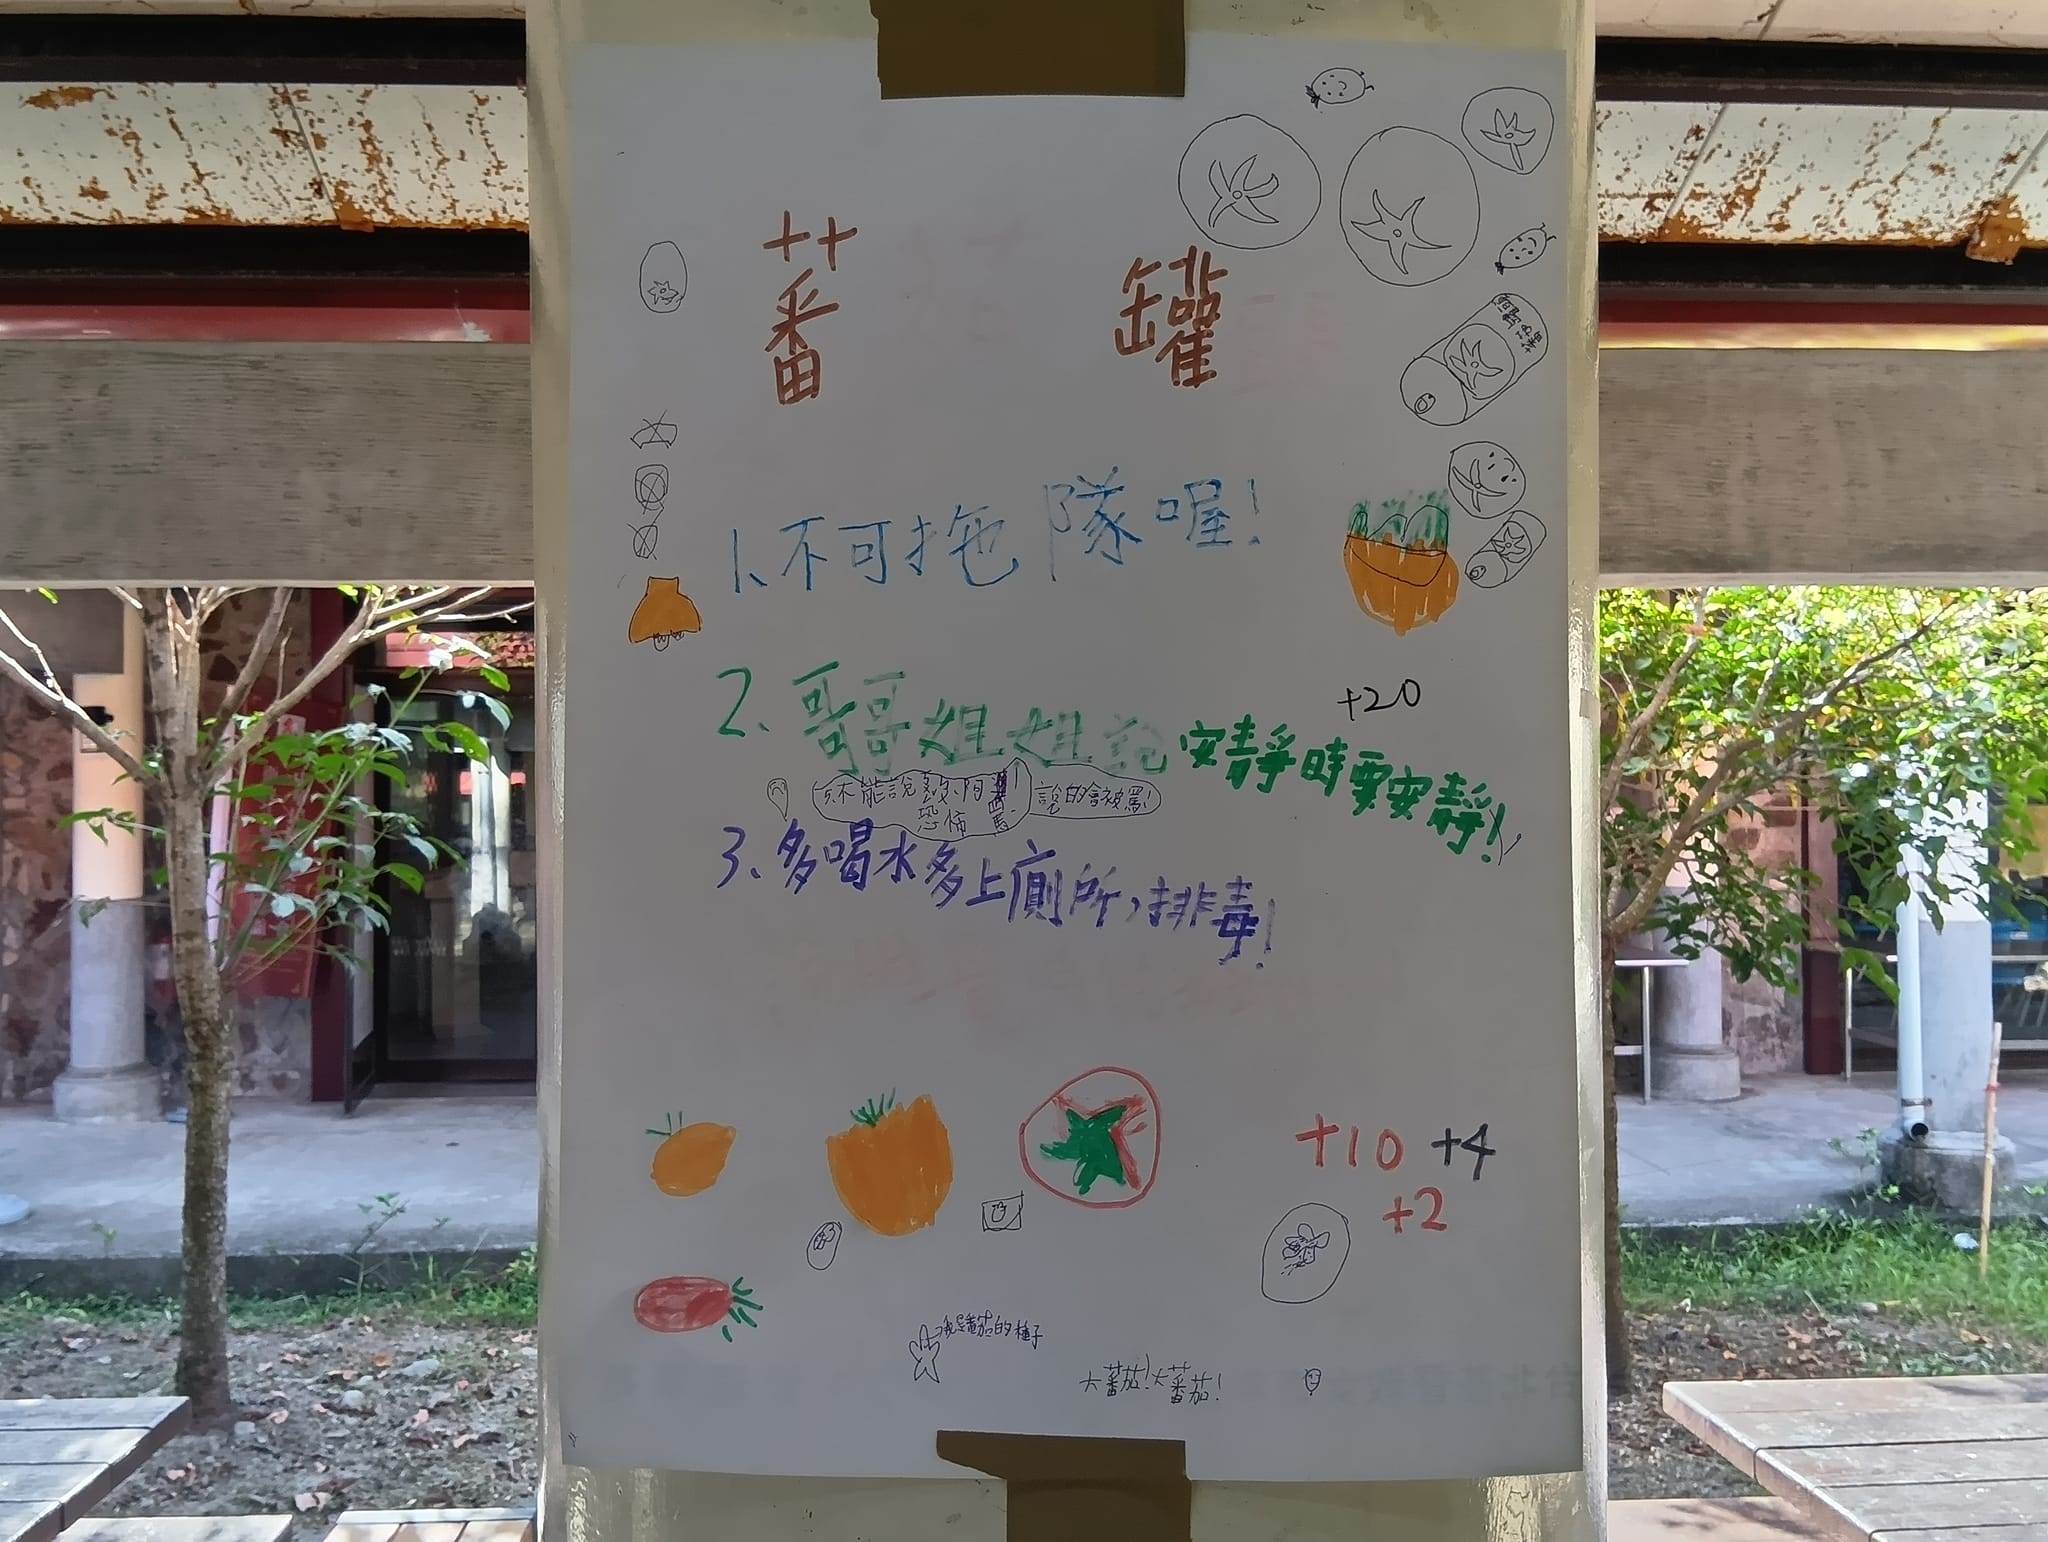 蕃 罐
1、不可拖隊喔!
+20
2、哥哥姐姐說安靜時要安靜!
不能說 恐怖
說的會被罵!
3、多喝水多上廁所,排毒!
+10 +4
+2
我是蕃茄的種子
大蕃茄!大蕃茄!